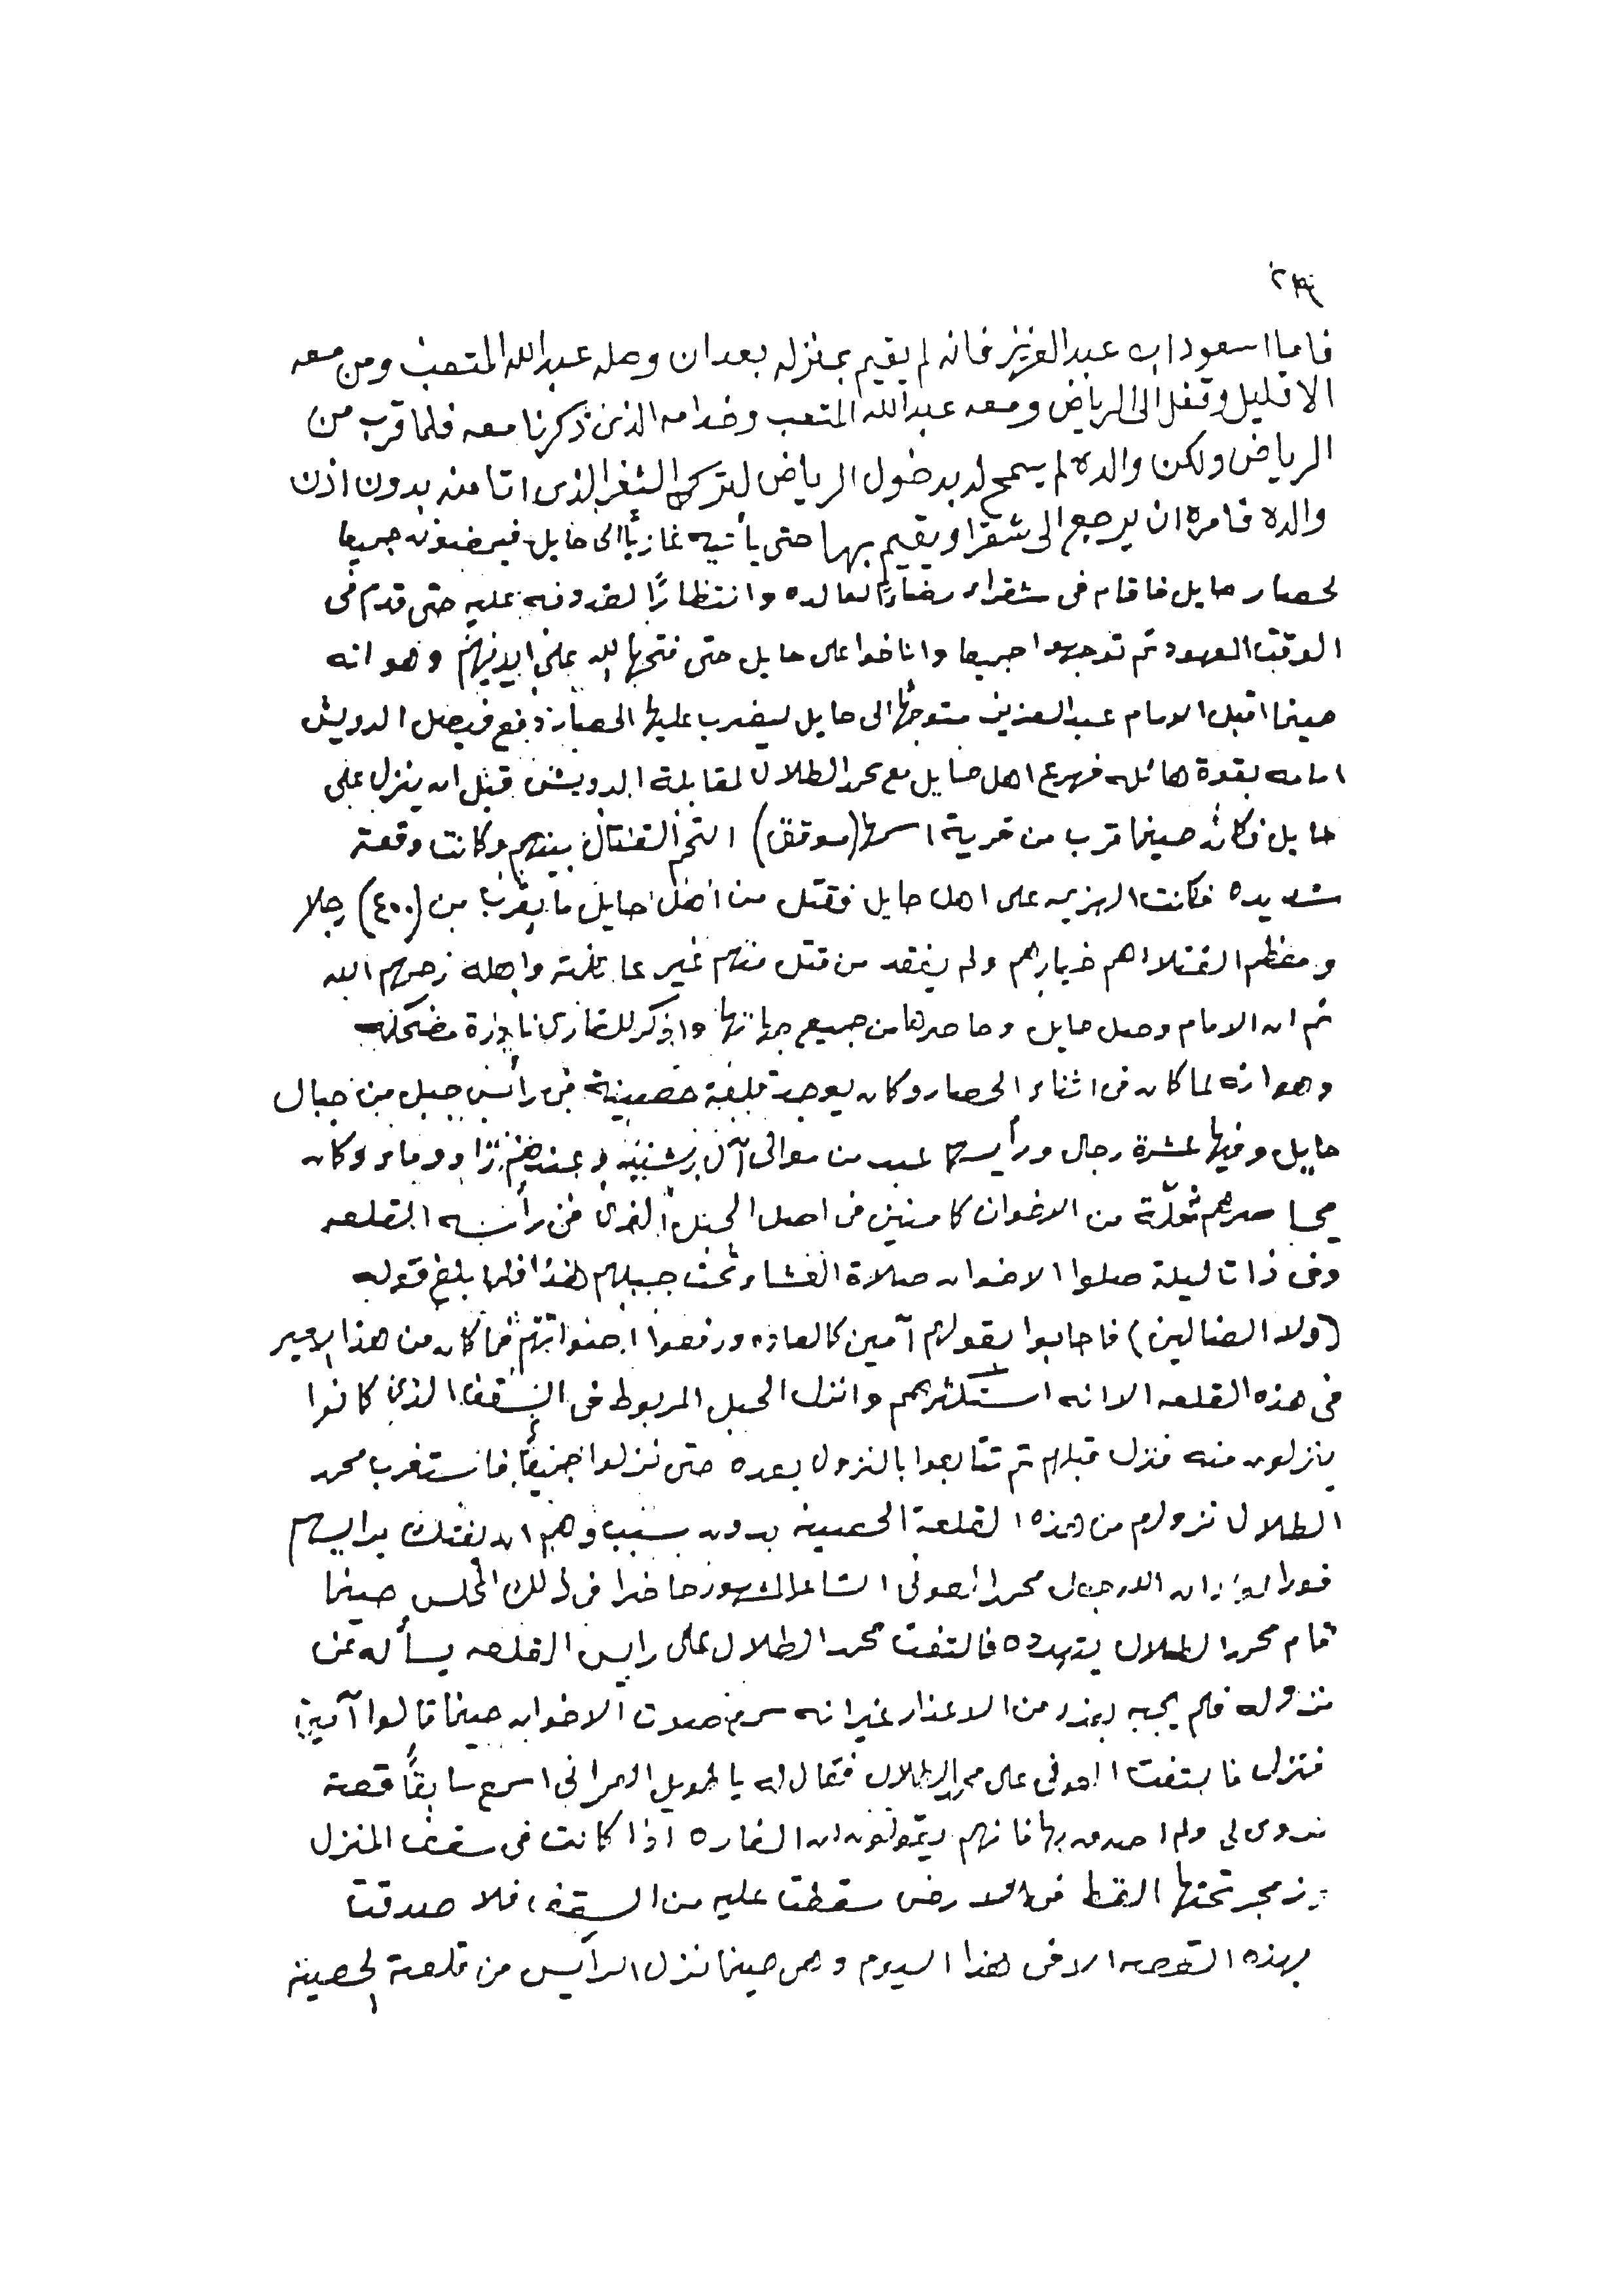 فاما سعود ابن عبدالعزيز فانه لم يقيم بمنزله بعد ان وصله عبدالله المتعب ومن معه
الا قليل وقفل الى الرياض ومعه عبدالله المتعب وخدامه الذين ذكرنا معه فلما قرب من
الرياض ولكن والده لم يسمح له بدخول الرياض لتركه الثغر الذي اتا منه بدون اذن
والده فامره ان يرجع الى شقرا ويقيم بها حتى يأتيه غازياً الى حايل فيمضون جميعا
لحصار حايل فاقام في شقراء رضاءً لوالده وانتظارًا لقدومه عليه حتى قدم في
الوقت المعهود ثم توجهوا جميعا واناخوا على حايل حتى فتحها الله على ايديهم وهو انه
حينما اقبل الامام عبدالعزيز متوجهًا الى حايل ليضرب عليها الحصار دفع فيصل الدويش
امامه بقوة هائله فهرع اهل حايل مع محمد الطلال لمقابلة الدويش قبل ان ينزل على
حايل فكان حينما قرب من قرية اسمها (موقق) التحم القتال بينهم وكانت وقعة
شديده فكانت الهزيمه على اهل حايل فقتل من اهل حايل ما يقرب من (٤٠٠) رجلا
ومعظم القتلا هم خيارهم ولم يفقد من قتل منهم غير عائلته واهله رحمهم الله
ثم ان الامام وصل حايل وحاصرها من جميع جهاتها واذكر للقاري نادرة مضحكه
وهو انه لما كان في اثناء الحصار وكان يوجد قلعة حصينة في رأس جبل من جبال
حايل وفيها عشرة رجال ورأيسهم عبد من موالي آل رشيد وعندهم زاد وماء وكان
محاصرهم ثلّة من الاخوان كامنين في اصل الجبل الذي في رأسه القلعه
وفي ذات ليلة صلوا الاخوان صلاة العشاء تحت جبلهم هذا فلما بلغ قوله
(ولا الضالين) فاجابوا بقولهم آمين كالعاده ورفعوا اصواتهم فما كان من هذا الامير
في هذه القلعه الا انه استكثرهم وانزل الحبل المربوط في السقف الذي كانوا
ينزلون منه فنزل قبلهم ثم تتابعوا بالنزول بعده حتى نزلوا جميعًا فاستغرب محمد
الطلال نزولهم من هذه القلعة الحصينه بدون سبب وهم ان يفتك برايسهم
فورا الا ان الرجل محمد العوني الشاعر المشهور حاضرا في ذلك المجلس حينما
قام محمد الطلال يتهدده فالتفت محمد الطلال على رايس القلعه يسأله عن
نزوله فلم يجبه بعذر من الاعذار غير انه سمع صوت الاخوان حينما قالوا آمين
فنزل فالتفت العوني على محمد الطلال فقال له يا طويل العمر اني اسمع سابقًا قصة
تروى لي ولم اصدق بها فانهم يقولون ان الفاره اذا كانت في سقف المنزل
زمجر تحتها القط في الارض سقطت عليه من السقف فلا صدقت
بهذه القصه الا في هذا اليوم وهي حينما نزل الرأيس من قلعة الحصينه